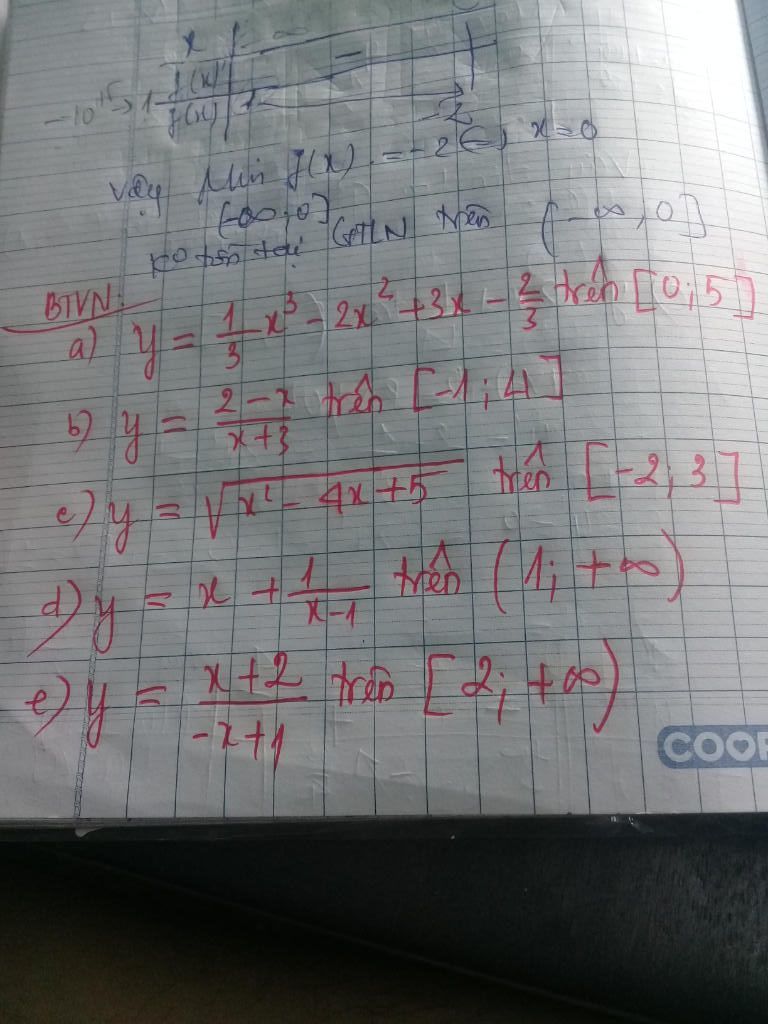 x | -∞
f'(x) | −
-10^15 → 1 f(x) | 1 -2
Vậy Min f(x) = -2 ⇔ x=0
(-∞,0]
Ko tồn tại GTLN trên (-∞,0]
BTVN:
a) y = 1/3 x³ - 2x² + 3x - 2/3 trên [0;5]
b) y = (2-x)/(x+3) trên [-1;4]
c) y = √(x² - 4x + 5) trên [-2;3]
d) y = x + 1/(x-1) trên (1;+∞)
e) y = (x+2)/(-x+1) trên [2;+∞)
COOP